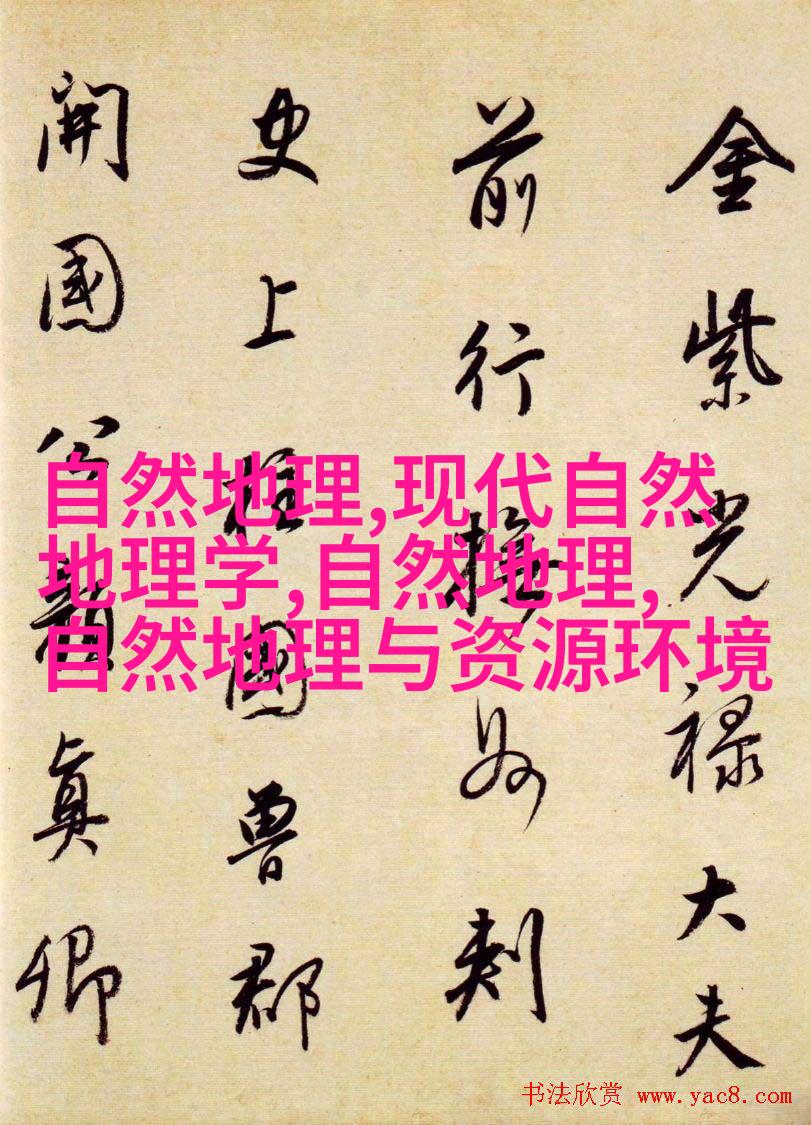 金紫光禄大夫
前行撫州刺
史上柱國魯郡
開國公顏真卿
自然地理,现代自然
地理学,自然地理,
自然地理与资源环境
书法欣赏 www.yac8.com